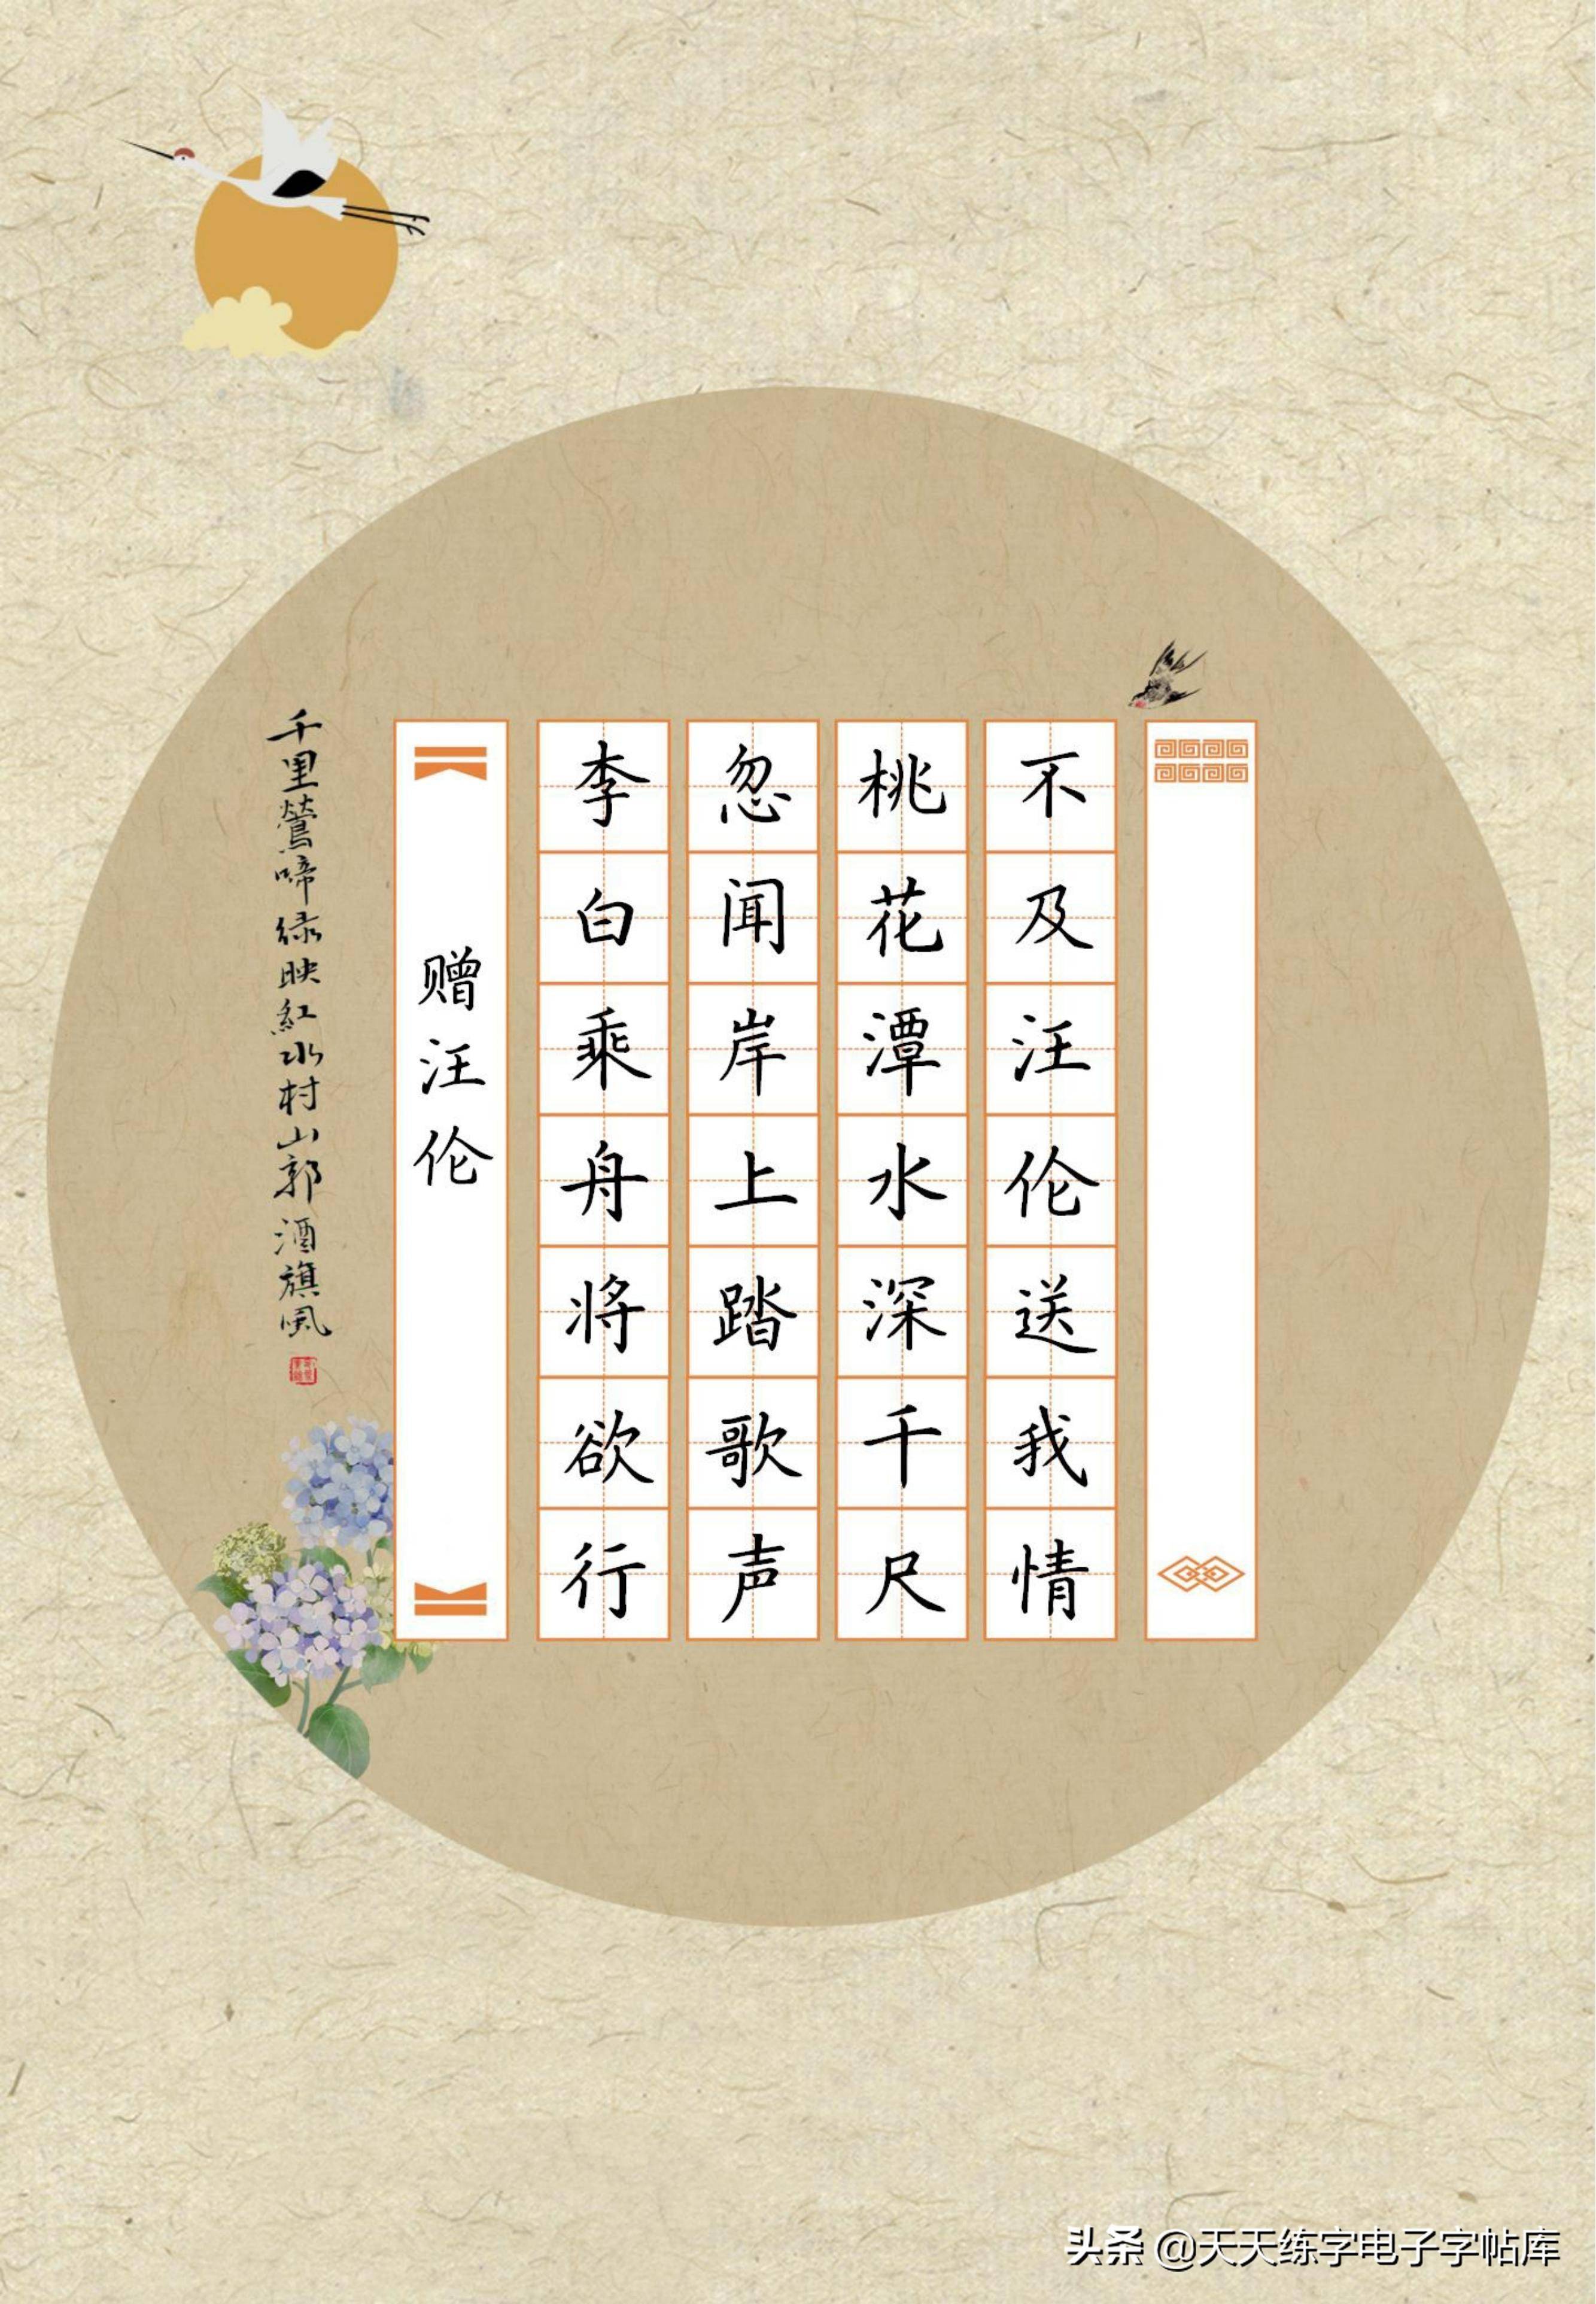 赠汪伦
李白乘舟将欲行
忽闻岸上踏歌声
桃花潭水深千尺
不及汪伦送我情
千里鶯啼绿映紅水村山郭酒旗风
头条 @天天练字电子字帖库